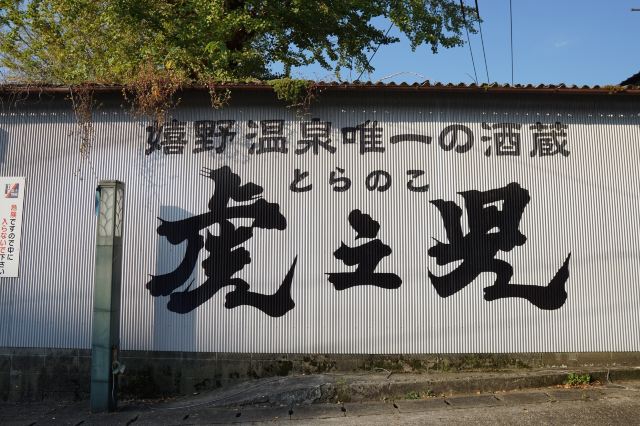 嬉野温泉唯一の酒蔵
とらのこ
虎之児
危険ですので中に
入らないで下さい